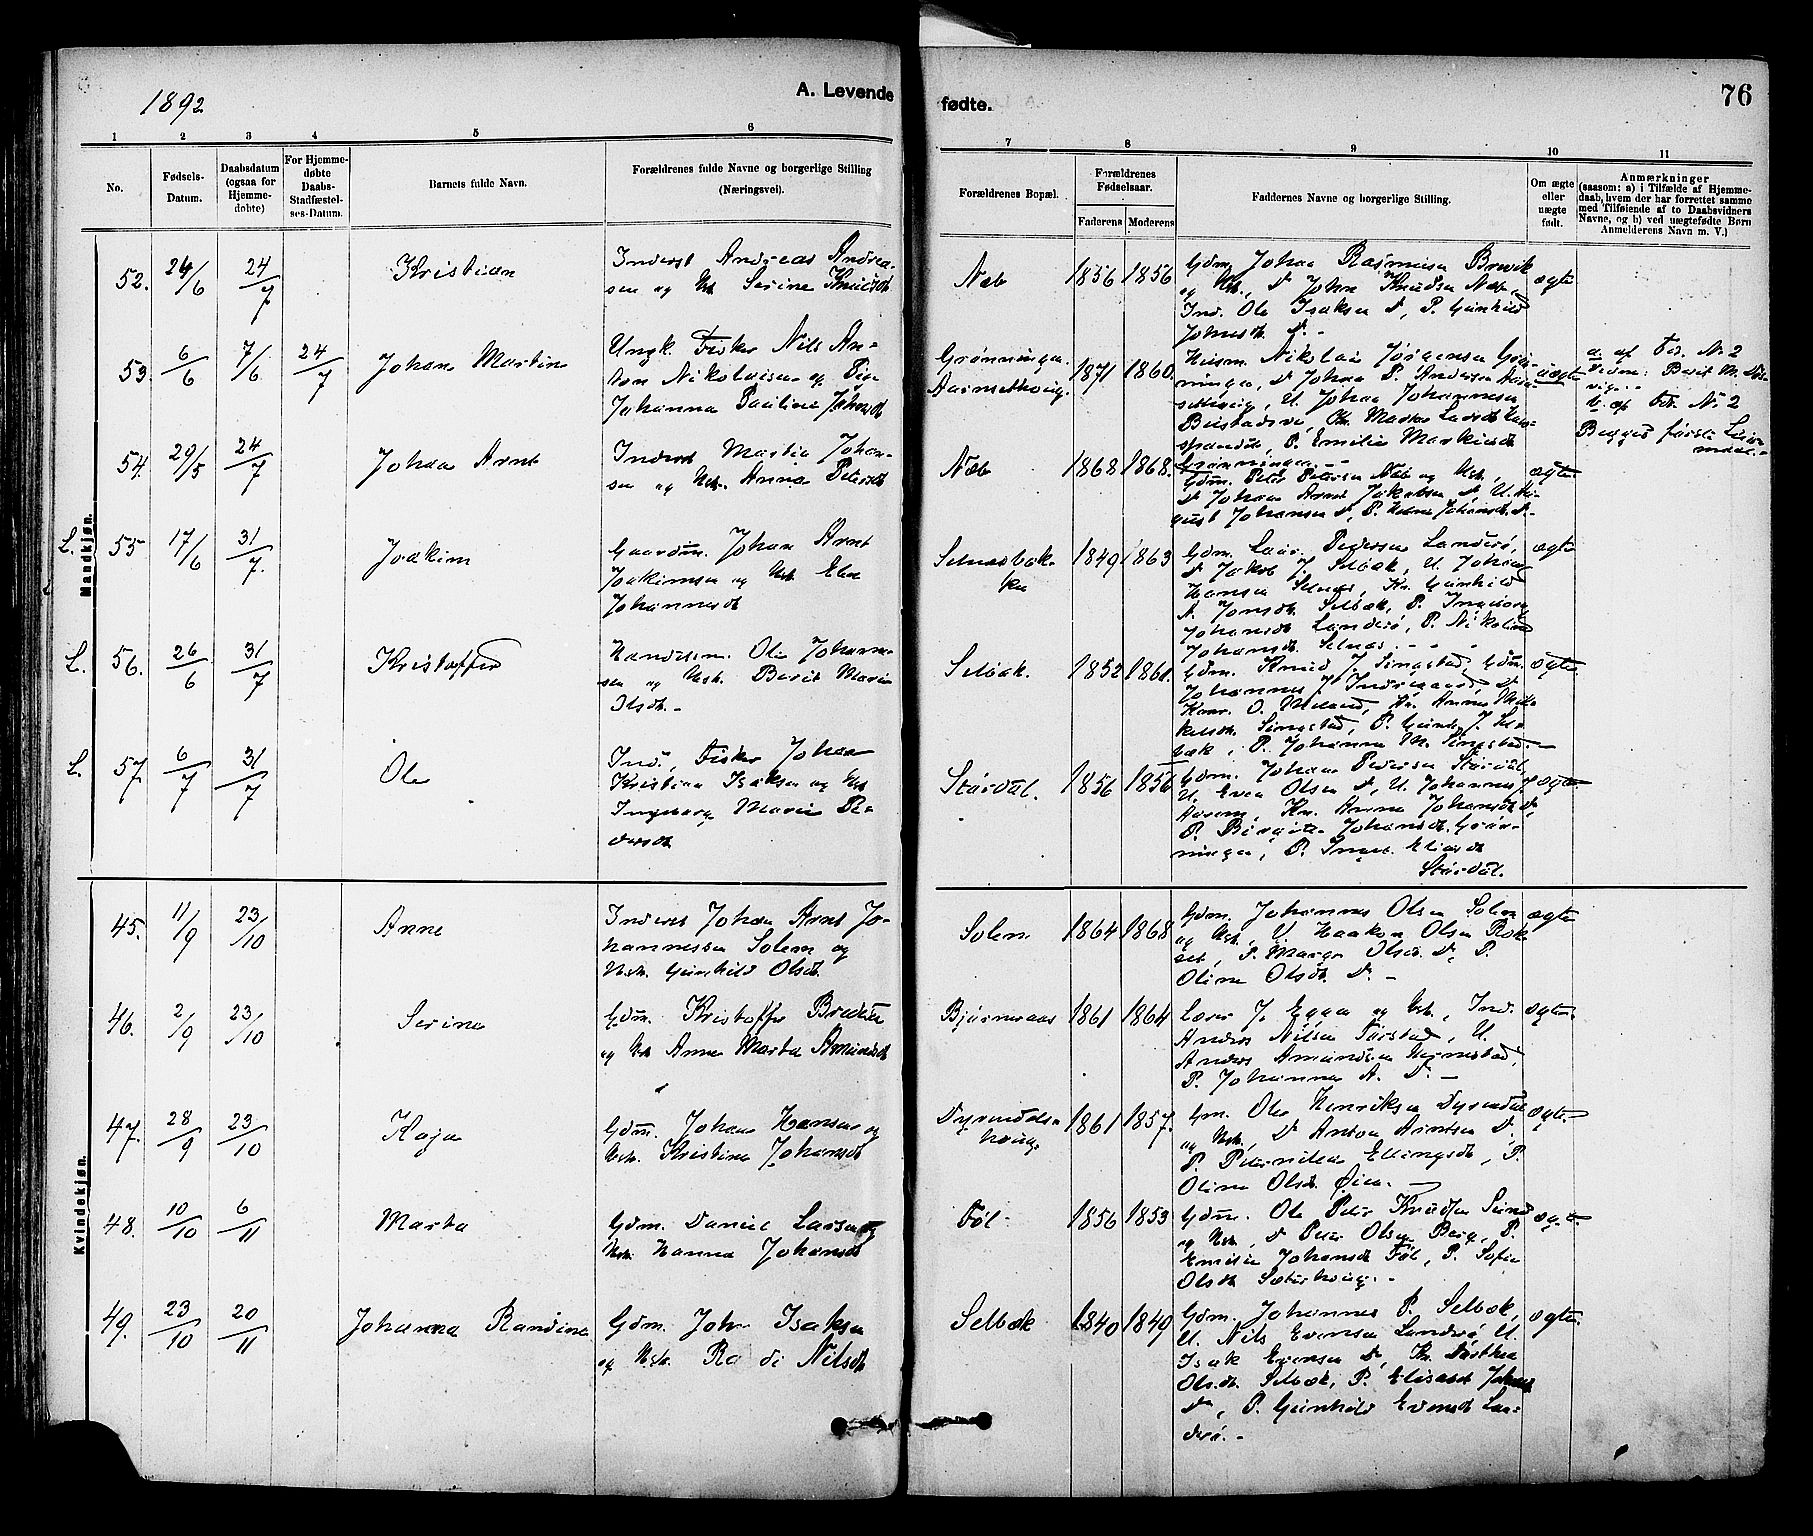 1892
A. Levende
fødte.
76
1
2
3
4
5
6
7
8
9
10
11
No.
Fødsels-
Datum.
Daabsdatum
(ogsaa for
Hjemme-
døbte)
For Hjemme-
døbte
Daabs-
Stadfæstel-
ses-Datum.
Barnets fulde Navn.
Forældrenes fulde Navne og borgerlige Stilling
(Næringsvei).
Forældrenes Bopæl.
Forældrenes
Fødselsaar.
Faderens
Moderens
Faddernes Navne og borgerlige Stilling.
Om ægte
eller
uægte
født.
Anmærkninger
(saasom: a) i Tilfælde af Hjemme-
daab, hvem der har forrettet samme
med Tilføiende af to Daabsvidners
Navne, og b) ved uægtefødte Børn
Anmelderens Navn m. V.)
Mandkjøn.
52. 24/6 24/7 Kristian
Inderst Andreas Andrea-
sen og Hst. Serine Knudsdt
Næb 1856 1856
Gdm. Johan Rasmussen Brevik
og Hst., D Johan Knudsen Næb,
Ind. Ole Isaksen D, P. Gunhild
Johnsdt. D. -
ægte
53. 6/6 7/6 24/7 Johan Martin
Ungk. Fisker Nils An-
ton Nikolaisen og Pige
Johanna Pauline Johnsdt
Grønningen
1871 1860.
Husm. Nikolai Jørgensen Grøn-
ningen, D Johan P. Andersen
U. Johan Johannesen
P. Emilie Markusdt
Grønningen. -
uægte
a. af Fdr. No 2
b. af Fdr. No 2
Begges første Leier-
maal. -
54. 29/5 24/7 Johan Arnt
Inderst Martin Johan-
sen og Hst. Anna Petersdt
Næb 1868 1868.
Gdm. Peter Petersen Næb og Hst.,
D Johan Arnt Jakobsen D, U. Au-
gust Johansen D, P. Johansdt. D -
ægte
L. 55 17/6 31/7. Joakim
Gaardm. Johan Arnt
Joakimsen og Hst. Elen
Johannesdt
Selnæsbak-
ken
1849 1863
Gdm. Lars Pedersen Landrø,
D Jakob J. Selbæk, U. Johan
Hansen Selnæs, Kn. Gunhild
A. Jonsdt. Selbæk, P. Ingeborg
Johansdt Landrø, P. Nikoline
Johansdt. Selnæs. - - -
ægte
L. 56. 26/6 31/7 Kristoffer
Handelsm. Ole Johann-
sen og Hst. Berit Marie
Olsdt. -
Selbæk. 1852 1861.
Gdm. Knud J. Singstad, Gdm.
Johannes J. Indregaard, D
O. Meland, Kn. Anne Mik-
kelsdt. Singstad, P. J. Sel-
bæk, P. Johanna M. Singstad. -
ægte
L. 57. 6/7 31/7 Ole
Ind., Fisker Johan
Kristian Isaksen og Hst
Ingeborg Marie Pe-
dersdt
Størdal. 1856 1856
Gdm. Johan Pedersen Størdal,
U. Even Olsen D, U. Johannes J.
Kn. Anne Johansdt. D,
P. Birgitte Johansdt. Grøn-
ningen, P. Eliasdt
Størdal.
ægte
Kvindekjøn.
45. 11/9 23/10 Anne
Inderst Johan Arnt Jo-
hannessen Solem og
Hst. Gunhild Olsdt.
Solem 1864 1868
Gdm. Johannes Olsen Solem
og Hst., U. Haakon Olsen Rok-
set, P. Marge Olsdt. D, P.
Oline Olsdt. D. -
ægte
46. 2/9 23/10 Serine
Gdm. Kristoffer Bredesen
og Hst Anne Marta Amundsdt
Bjørneraas 1861 1864
Lærer J. Eggen og Hst., Ind.
Anders Nilsen Tørstad, U.
Anders Amundsen
P. Johanna A. D. -
ægte.
47. 28/9 23/10 Kaja
Gdm. Johan Hansen og
Hst. Kristine Johansdt
Dyrendals-
houg. 1861 1857.
Gm. Ole Henriksen Dyrendal
og Hst., D Anton Arntsen D.
P. Pernille Ellingsdt, P.
Oline Olsdt. Øien. -
ægte
48. 10/10 6/11 Marta
Gdm. Daniel Larsen og
Hst. Hanna Johansdt
Føl. 1856 1853
Gdm. Ole Peter Knudsen Sund
og Hst, D Peter Olsen Berg, P.
Emilie Johansdt Føl, P. Sofie
Olsdt Sæterhoug. -
ægte
49. 23/10 20/11 Johanna Randine
Gdm. John Isaksen
og Hst. Randi Nilsdt
Selbæk 1840 1849
Gdm. Johannes P. Selbæk,
U. Nils Evensen Landrø, U.
Isak Evensen D, Kn. Dorthea
Olsdt. Selbæk, P. Elisabet Johnsdt
D, P. Gunhild Evensdt Lan-
drø. -
ægte.